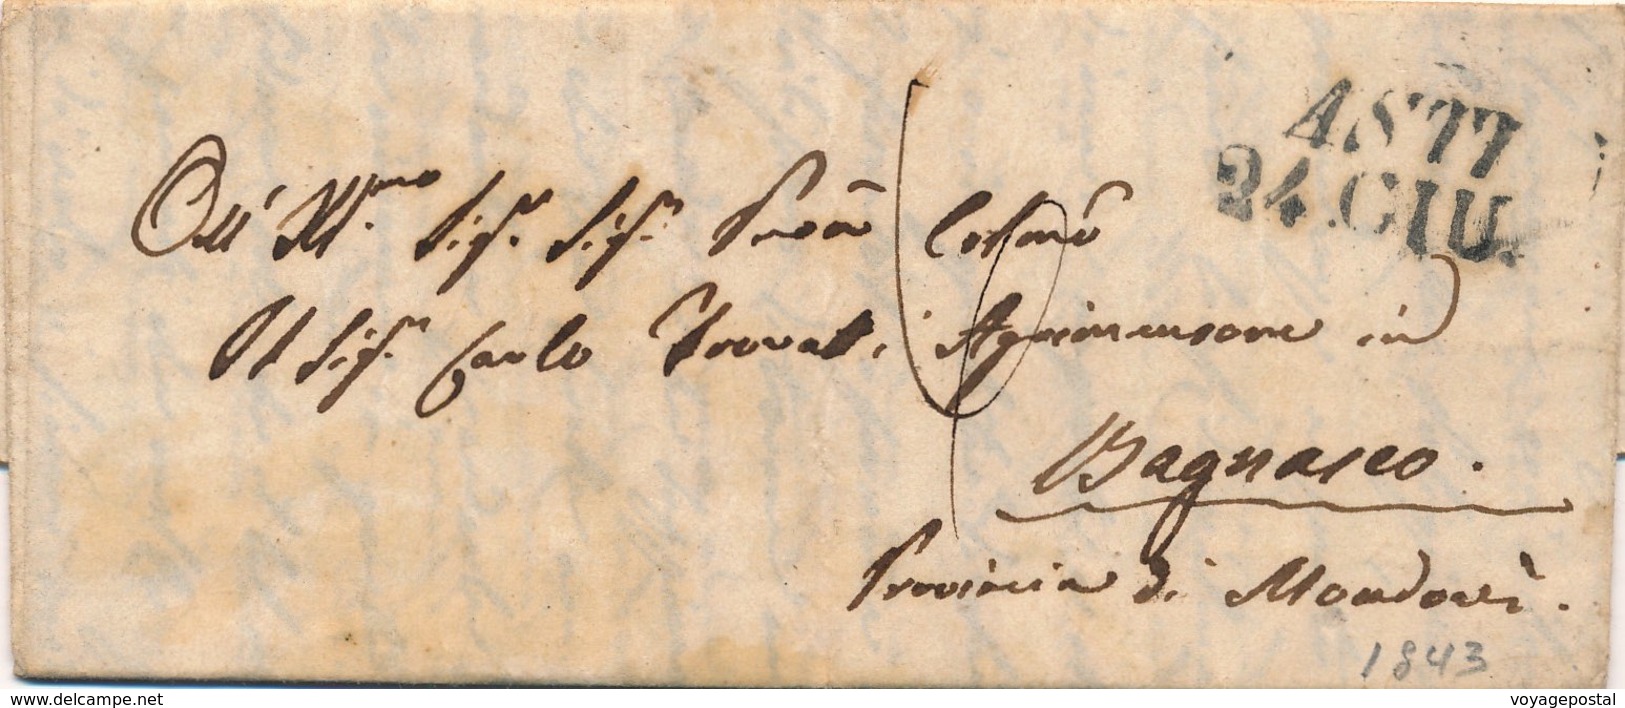 ASTI
24.GIU.
All' Ill.mo Sig.r Sig.r Pron Colmo
Il Sig.r Carlo Trovati Agrimensore in
Bagnasco.
Provincia di Mondovì.
1843
www.delcampe.net
voyagepostal